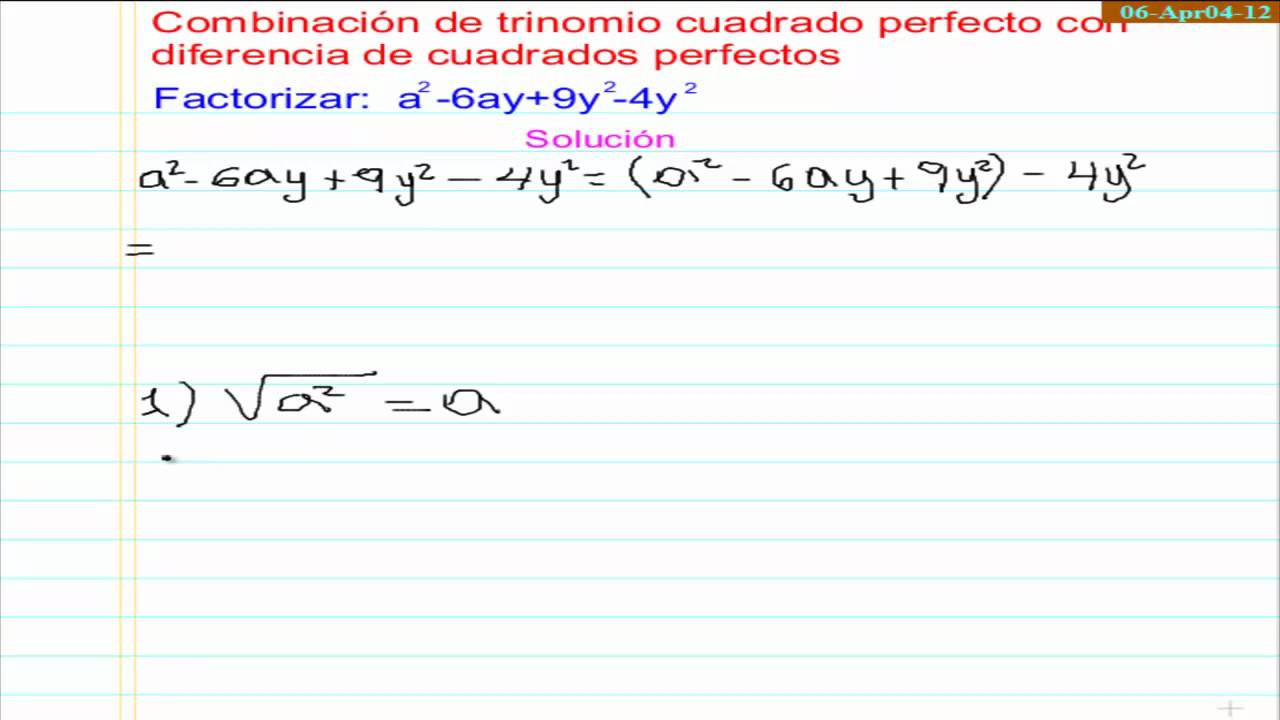 06-Apr04-12
Combinación de trinomio cuadrado perfecto con
diferencia de cuadrados perfectos
Factorizar: a²-6ay+9y²-4y²
Solución
a²-6ay+9y²-4y²=(a²-6ay+9y²)-4y²
=
1) √a² = a